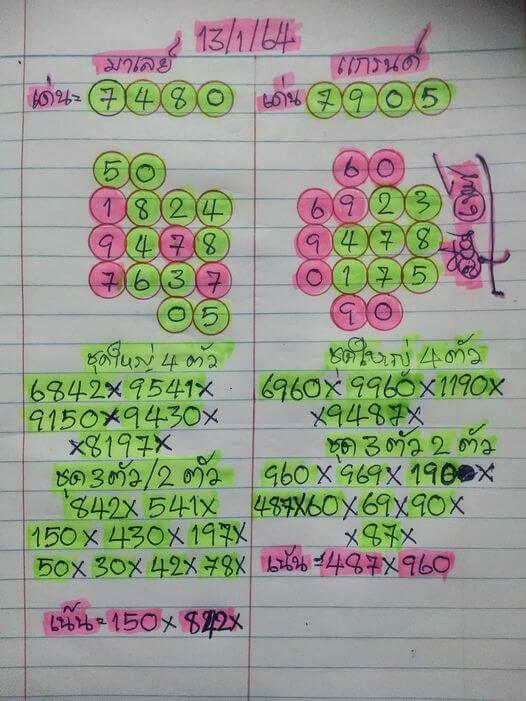 13/1/64
มาเลย์
เด่น= 7 4 8 0
5 0
1 8 2 4
9 4 7 8
7 6 3 7
0 5
ชุดใหญ่ 4 ตัว
6842 x 9541 x
9150 x 9430 x
x 8197 x
ชุด 3 ตัว/2 ตัว
842 x 541 x
150 x 430 x 197 x
50 x 30 x 42 x 78 x
เน้น = 150 x 842 x
แกรนด์
เด่น 7 9 0 5
6 0
6 9 2 3
9 4 7 8
0 1 7 5
9 0
ชุดใหญ่ 4 ตัว
6960 x 9960 x 1190 x
x 9487 x
ชุด 3 ตัว 2 ตัว
960 x 969 x 190 x
487 x 60 x 69 x 90 x
x 87 x
เน้น = 487 x 960